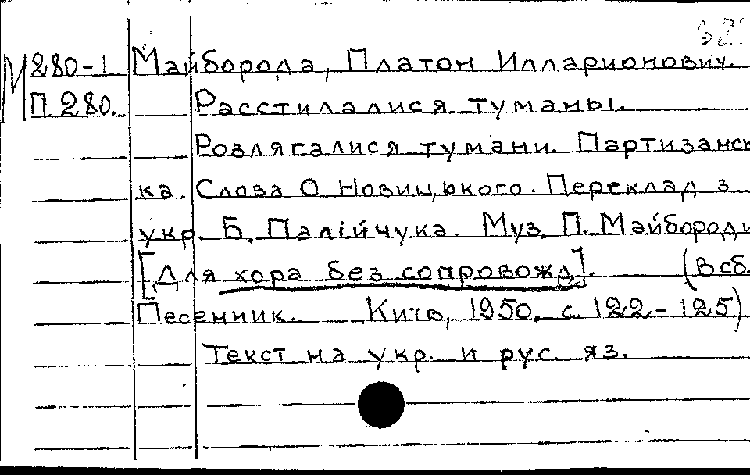 М280-1 Майборода, Платон Илларионович.
П.280. Расстилалися туманы.
Розлягалися тумани. Партизансь
ка. Слова О. Новицького. Переклад з
укр. Б. Палійчука. Муз. П. Майбороди
[Для хора без сопровожд]. (В сб.
Песенник. Київ, 1950. с. 122-125)
Текст на укр. и рус. яз.